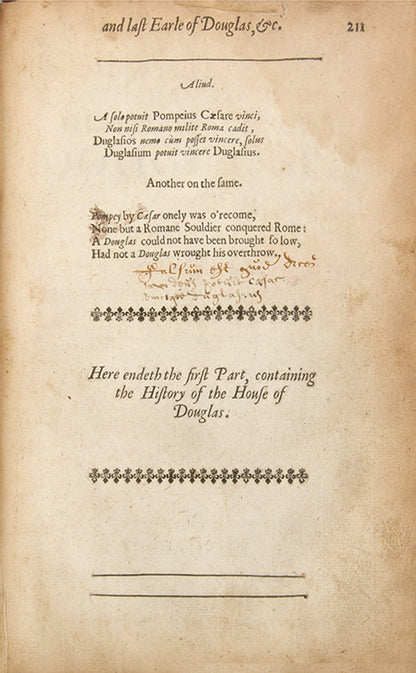 and laſt Earle of Douglas, &c. 211
Aliud.
A ſolo potuit Pompeius Cæſare vinci,
Non niſi Romano milite Roma cadit,
Duglaſios nemo cùm poſſet vincere, ſolus
Duglaſium potuit vincere Duglaſius.
Another on the ſame.
Pompey by Cæſar onely was o'recome,
None but a Romane Souldier conquered Rome:
A Douglas could not have been brought ſo low,
Had not a Douglas wrought his overthrow.
falſum eſt quod
potuit Cæſar
Duglaſius
Here endeth the firſt Part, containing
the Hiſtory of the Houſe of
Douglas.